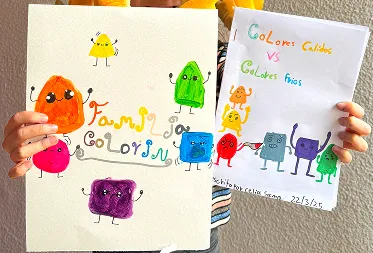 FamiLia
CoLorin
CoLores Calidos
VS
CoLores frios
22/3/25